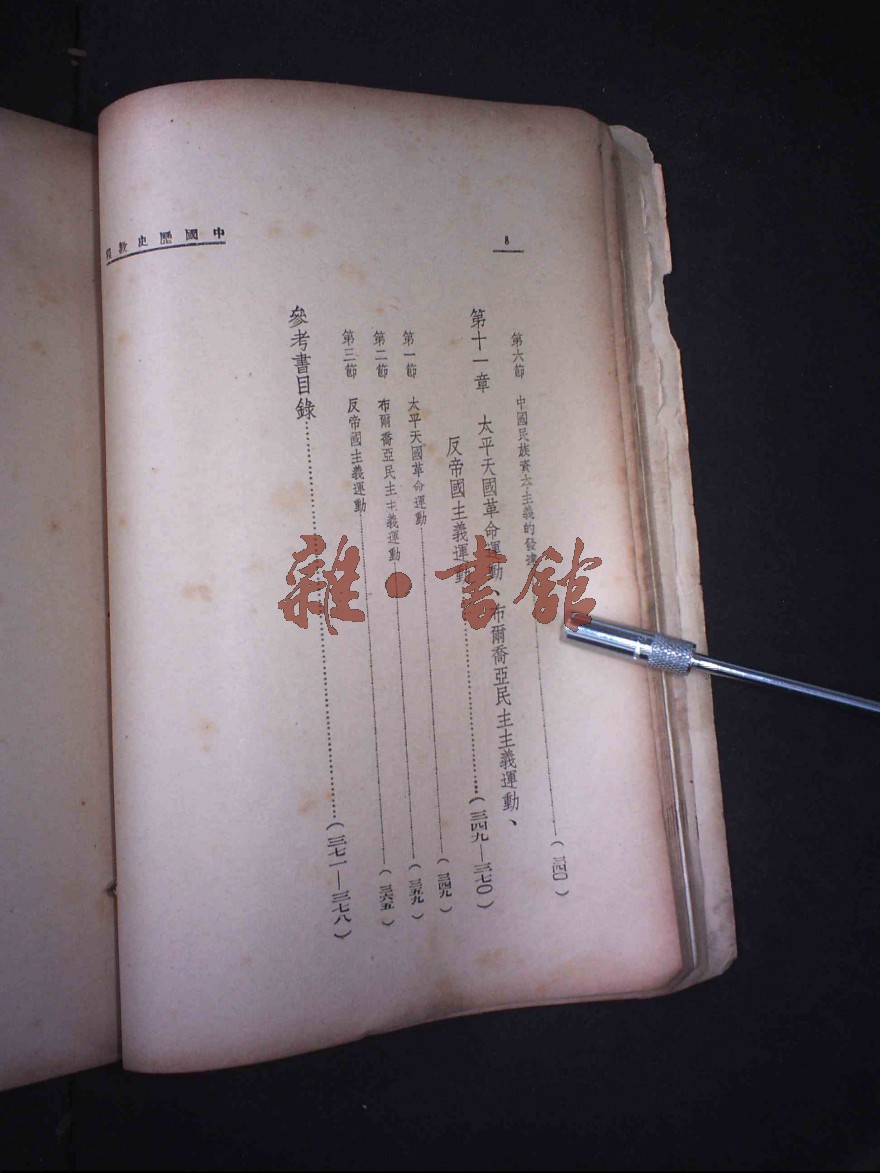 中國歷史教程
8
第六節 中國民族資本主義的發達……(三四〇)
第十一章 太平天國革命運動、布爾喬亞民主主義運動、
反帝國主義運動……(三四九—三七〇)
第一節 太平天國革命運動……(三四九)
第二節 布爾喬亞民主主義運動……(三五九)
第三節 反帝國主義運動……(三六五)
參考書目錄……(三七一—三七八)
雜·書館